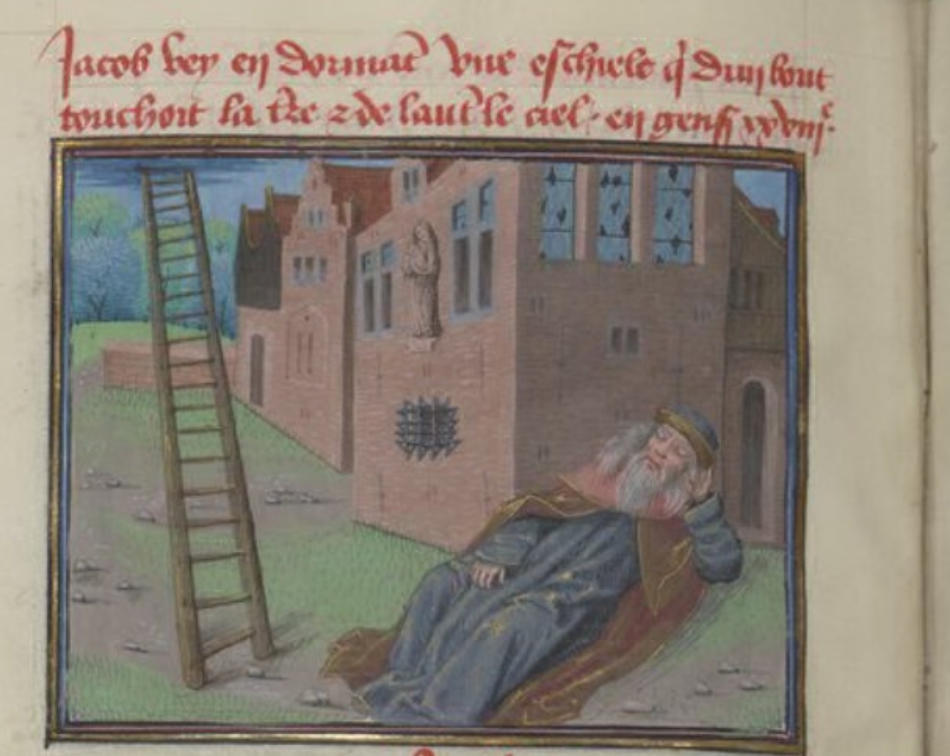 Jacob vey en dormāt vne eschiele q̄ dun bout
touchoit la t̄re ⁊ de laut̄ le ciel · en geñs xxviijᵉ·